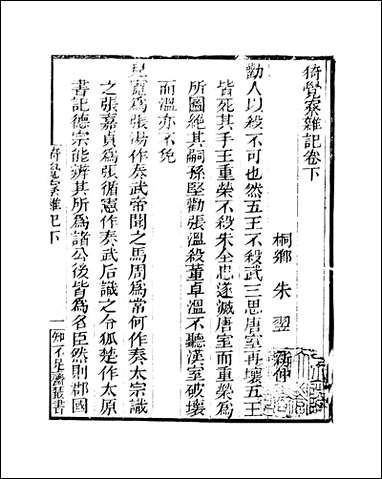 猗覺寮雜記卷下
桐鄉 朱翌 新仲
勸人以殺不可也然五王不殺武三思唐室再壞五王
皆死其手王重榮不殺朱全忠遂滅唐室而重榮爲
所圖絕其嗣孫堅勸張溫殺董卓溫不聽漢室破壞
而溫亦不免
兒寬爲張湯作奏武帝問之馬周爲常何作奏太宗識
之張嘉貞爲張循憲作奏武后識之令狐楚作太原
書記德宗能辨其所爲諸公後皆爲名臣然則郡國
猗覺寮雜記下
一
知不足齋叢書